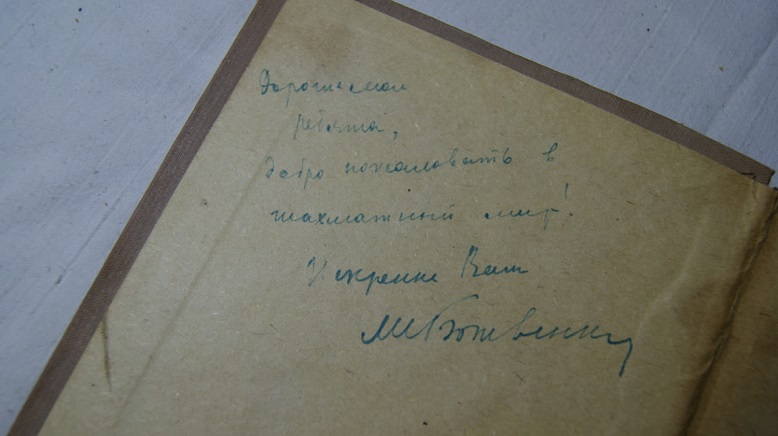 Дорогие мои
ребята,
добро пожаловать в
шахматный мир!
Искренне Ваш
М Ботвинник